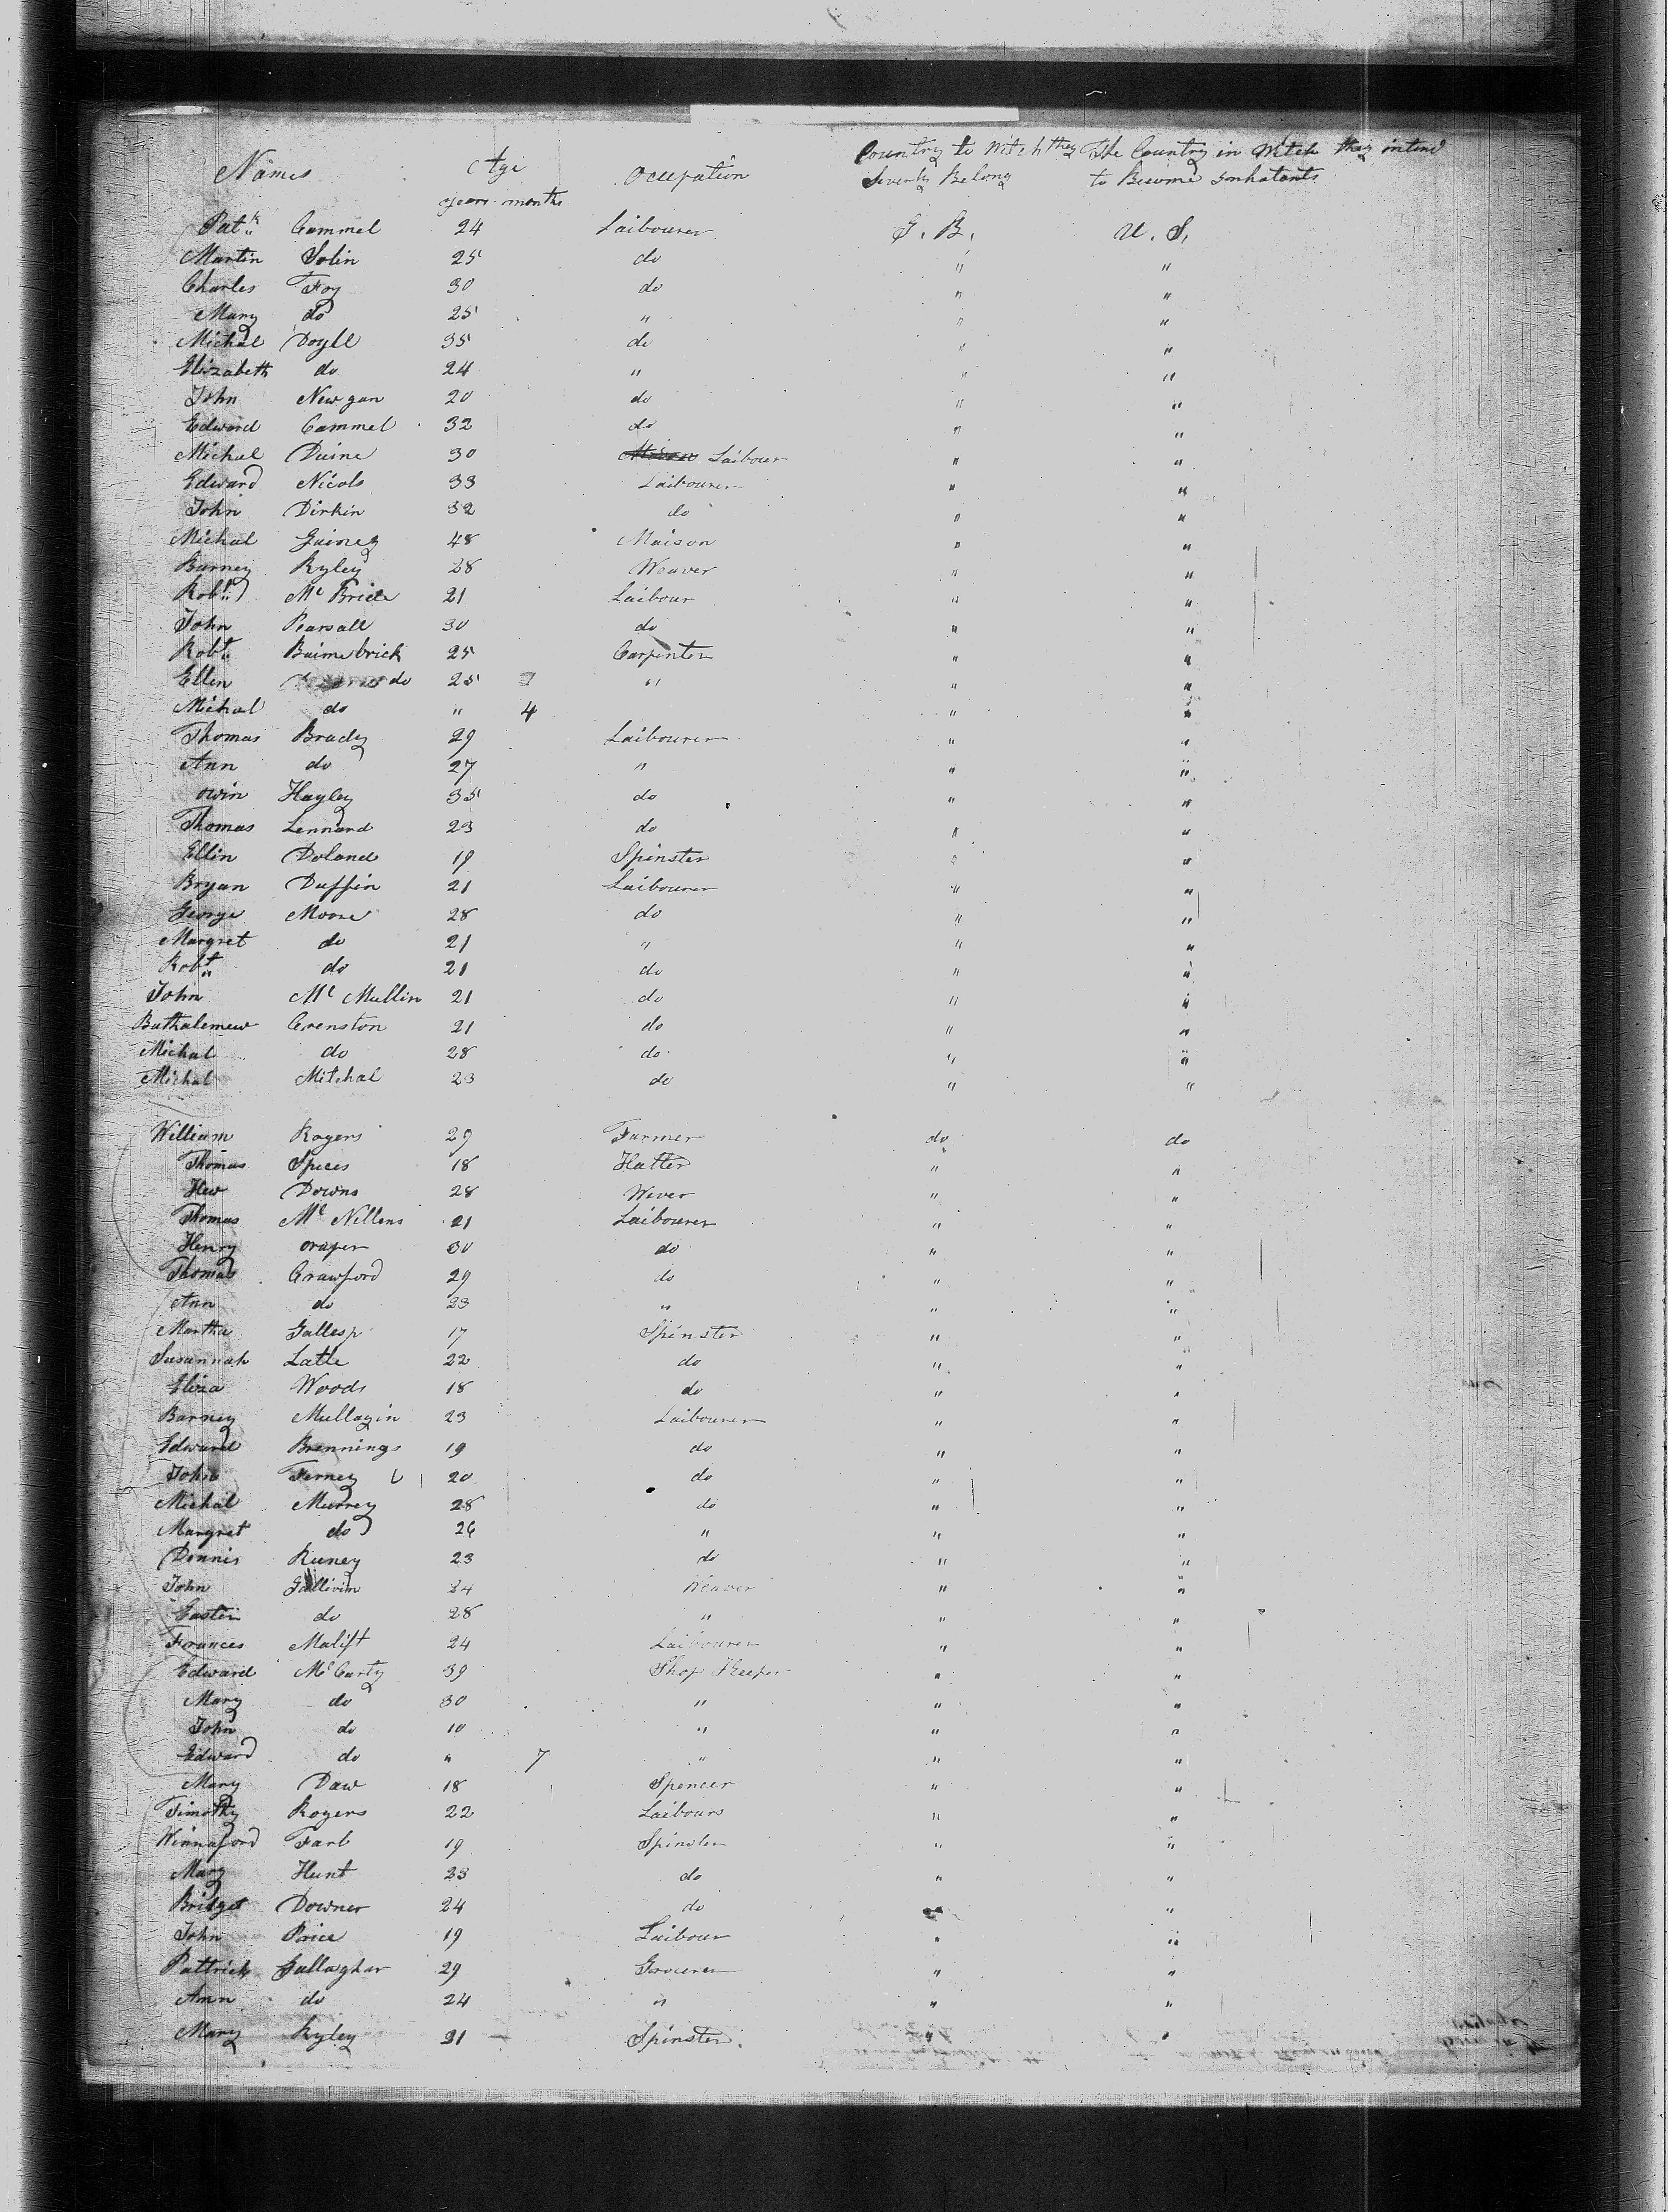 Names Age Occupation Country to Witch they The Country in Witch they intend
years months Severly Belong to Become Inhatants
Patk Cammel 24 Laibourer G. B. U. S.
Martin Solin 25 do " "
Charles Foy 30 do " "
Mary do 25 " " "
Michal Doyll 35 do " "
Elizabeth do 24 " " "
John Newgan 20 do " "
Edward Cammel 32 do " "
Michal Duine 30 Laibour " "
Edward Nicols 33 Laibourer " "
John Dirkin 32 do " "
Michal Gainey 48 Maison " "
Barney Ryley 28 Weaver " "
Robt Mc Bride 21 Laibour " "
John Pearsall 30 do " "
Robt Baimebrick 25 Carpenter " "
Ellen do 25 " " "
Michal do " 4 " "
Thomas Brady 29 Laibourer " "
Ann do 27 " " "
owin Hayley 35 do " "
Thomas Lennard 23 do " "
Ellin Doland 19 Spinster " "
Bryan Duffin 21 Laibourer " "
George Moore 28 do " "
Margret do 21 " " "
Robt do 21 do " "
John Mc Mullin 21 do " "
Bathalemew Crenston 21 do " "
Michal do 28 do " "
Michal Mitchal 23 do " "
William Rogers 29 Farmer do do
Thomas Spices 18 Hatter " "
Hew Downs 28 Wever " "
Thomas Mc Nillens 21 Laibourer " "
Henry oraper 30 do " "
Thomas Crawford 29 do " "
Ann do 23 " " "
Martha Gallesp 17 Spinster " "
Susannah Latle 22 do " "
Eliza Woods 18 do " "
Barney Mullagin 23 Laibourer " "
Edward Brennings 19 do " "
John Ferney 20 do " "
Michal Murrey 28 do " "
Margret do 26 " " "
Dennis Runey 23 do " "
John Gallivin 24 Weaver " "
Easter do 28 " " "
Frances Malift 24 Laibourer " "
Edward Mc Carty 39 Shop Keeper " "
Mary do 30 " " "
John do 10 " " "
Edward do " 7 " " "
Mary Daw 18 Spencer " "
Timothy Rogers 22 Laibours " "
Winnaford Farl 19 Spinster " "
Mary Hunt 23 do " "
Bridget Downer 24 do " "
John Price 19 Laibour " "
Pattrick Gallaghar 29 Grocerer " "
Ann do 24 " " "
Mary Ryley 21 Spinster. " "